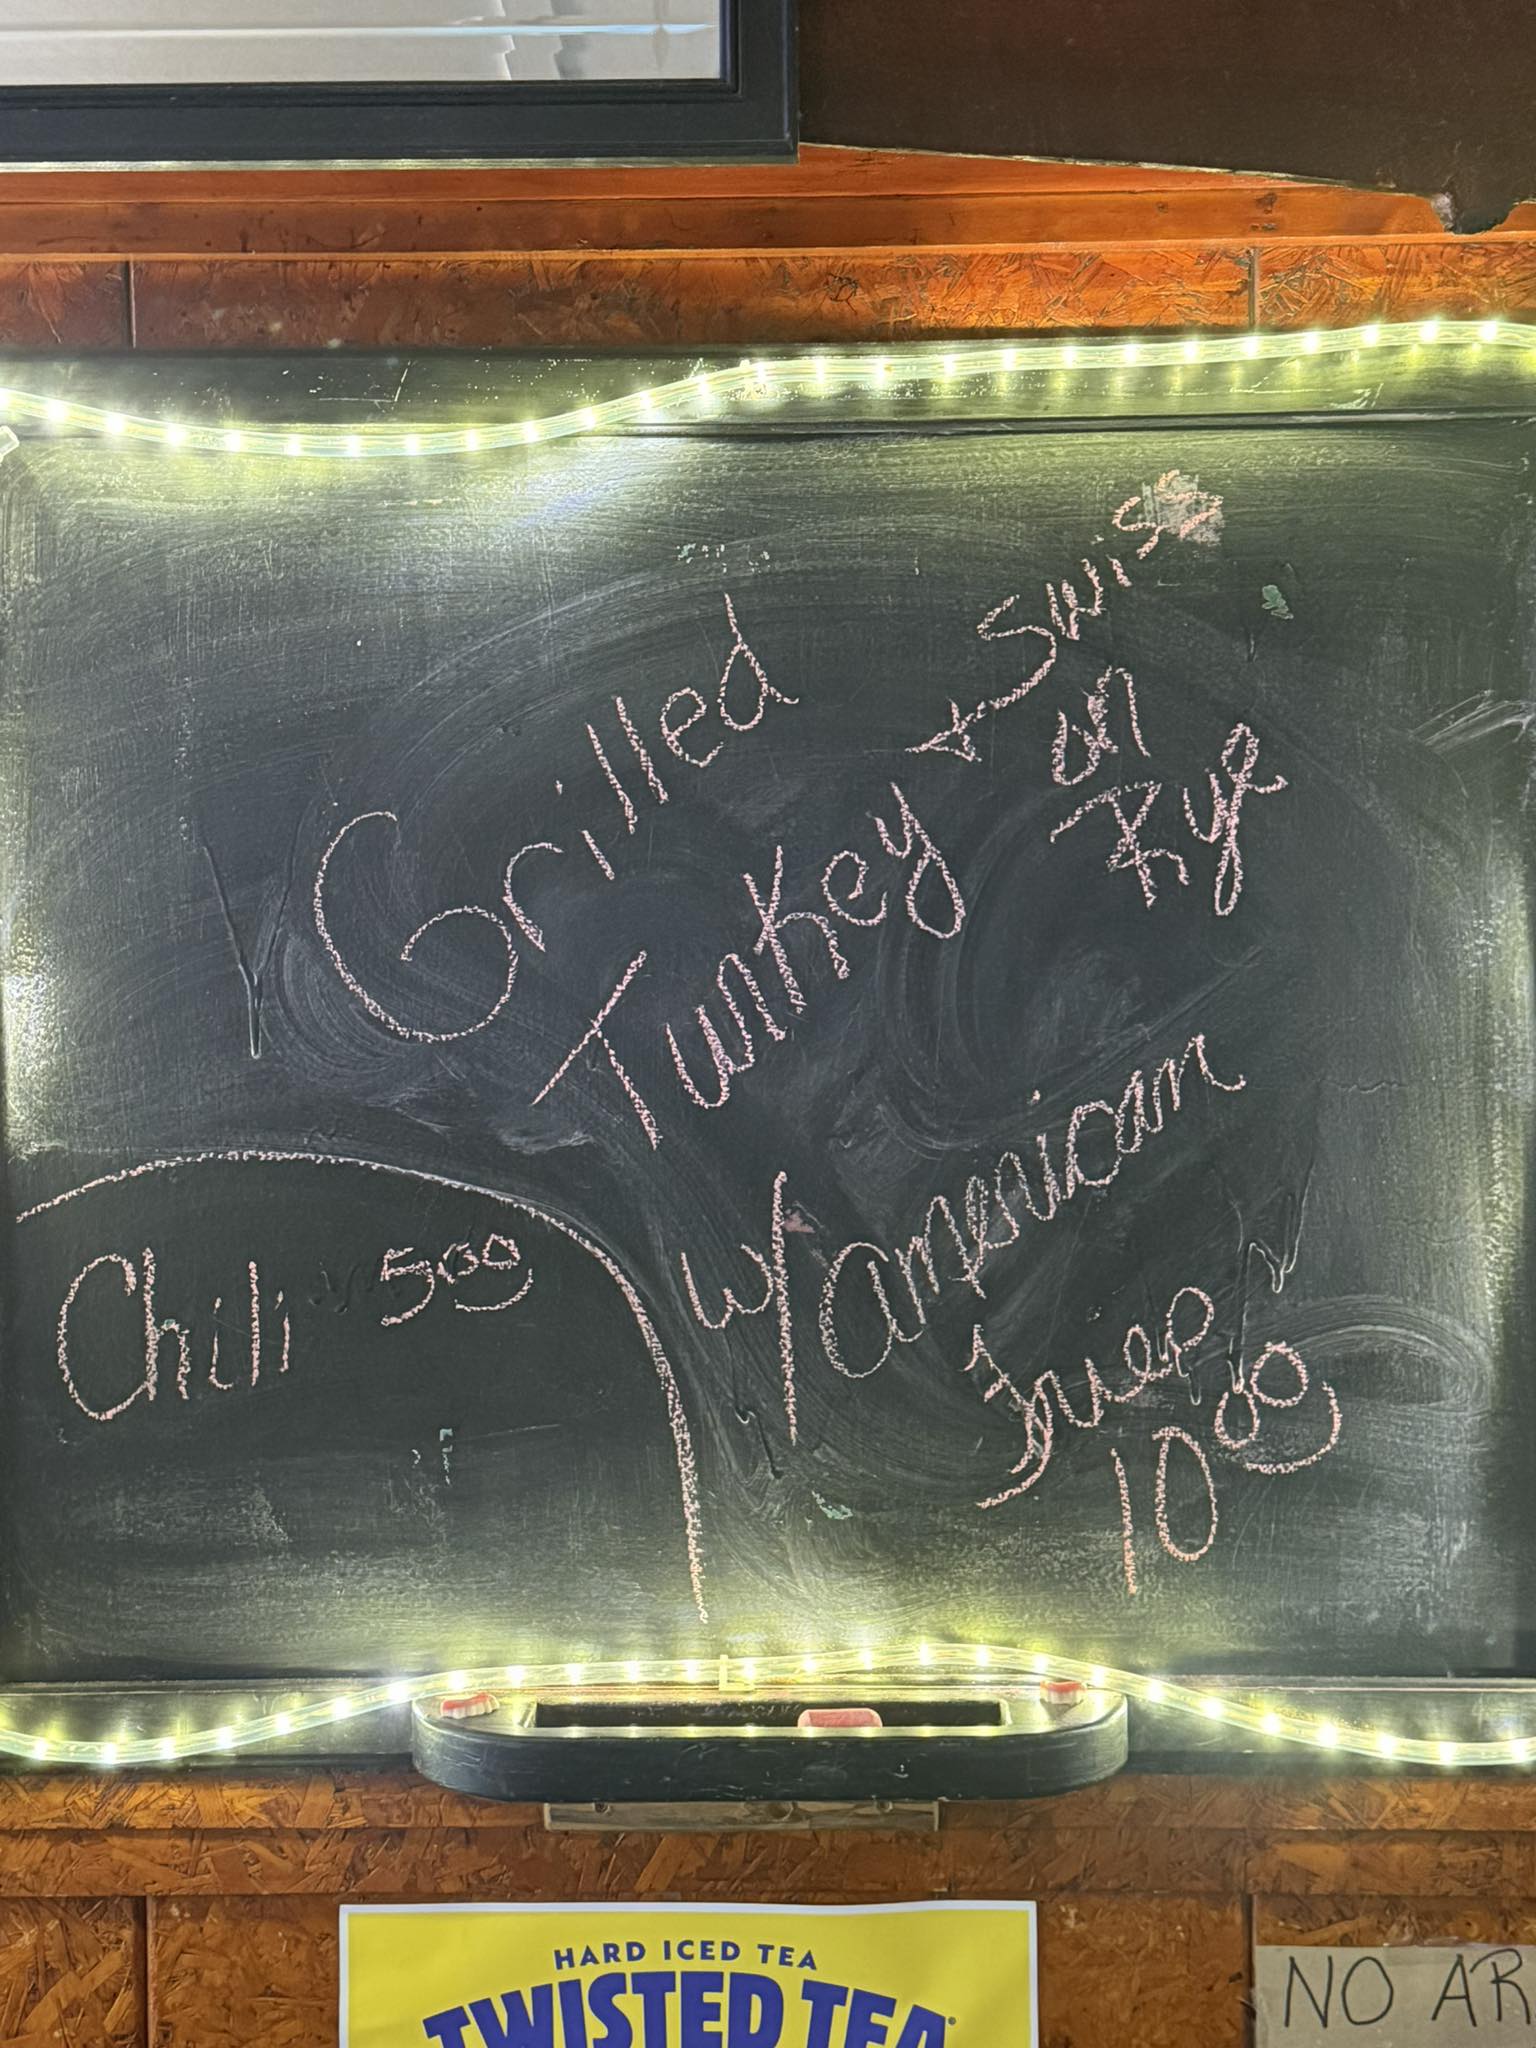 Grilled
Turkey + Swiss
on
Rye
w/ American
Fries
10 00
Chili 5 00
HARD ICED TEA
TWISTED TEA®
NO AR